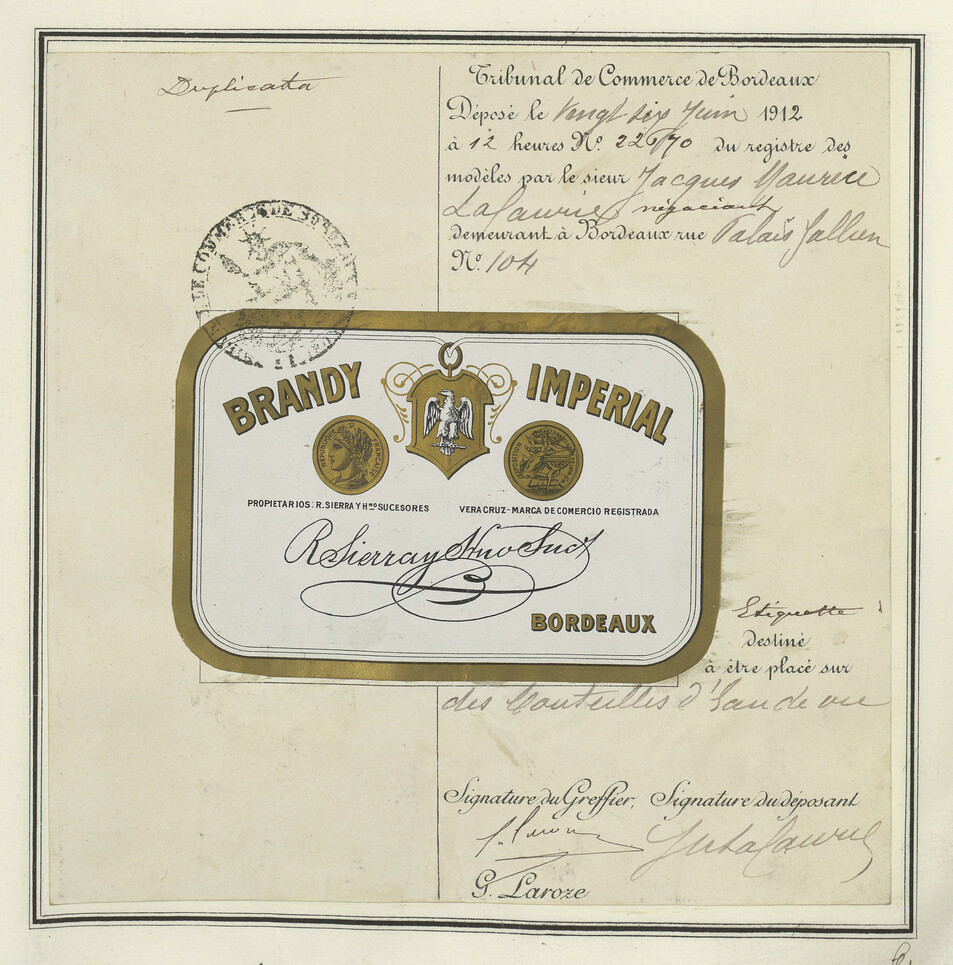 Duplicata
Tribunal de Commerce de Bordeaux
Déposé le Vingt six Juin 1912
à 12 heures Nº. du registre des
modèles par le sieur Jacques Maurice
Lalaurie négociant
demeurant à Bordeaux rue Palais Gallien
Nº 104
DE COMMERCE DE BORDEAUX
BRANDY IMPERIAL
REPUBLIQUE FRANÇAISE
EXPOSITION
PROPIETARIOS: R. SIERRA Y Hno SUCESORES
VERACRUZ-MARCA DE COMERCIO REGISTRADA
R Sierra y Hno Sucs
BORDEAUX
Etiquette
destiné
à être placé sur
des bouteilles d'Eau de vie
Signature du Greffier, Signature du déposant
G. Laroze